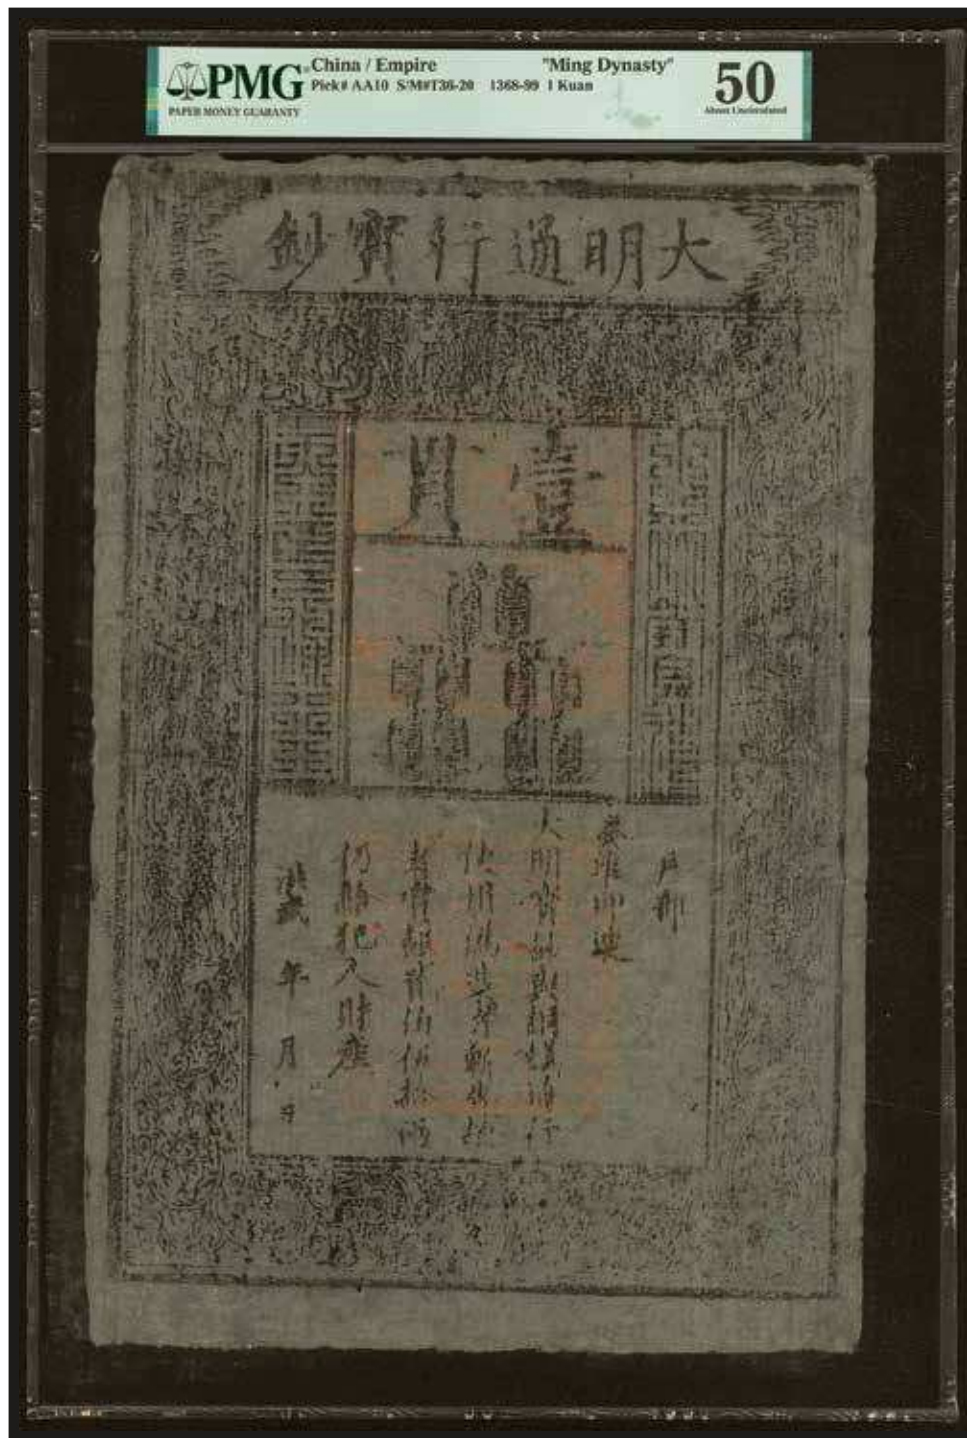 PMG
PAPER MONEY GUARANTY
China / Empire "Ming Dynasty"
Pick# AA10 S/M#T36-20 1368-99 1 Kuan
50
About Uncirculated
大明通行寳鈔
壹貫
戶部
奏准印造
大明寳鈔與銅錢通行
使用偽造者斬告捕
者賞銀貳伯伍拾兩
仍給犯人財產
洪武 年 月 日